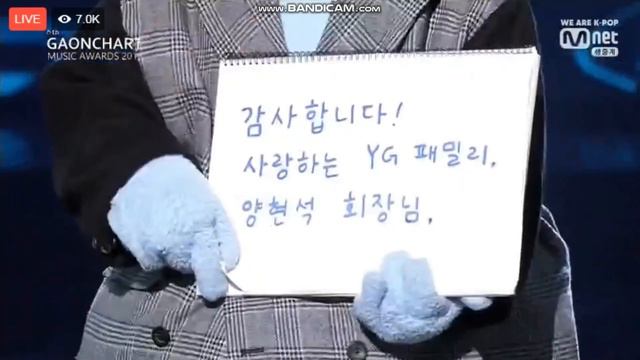 LIVE 7.0K
www.BANDICAM.com
8th
GAONCHART
MUSIC AWARDS
WE ARE K-POP
Mnet
생중계
감사합니다!
사랑하는 YG 패밀리,
양현석 회장님,